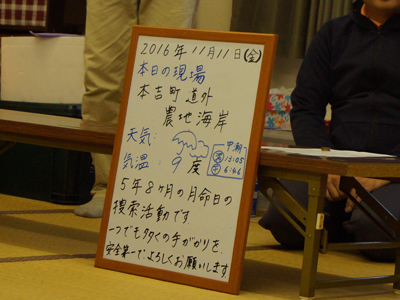 2016年11月11日(金)
本日の現場
本吉町 道外
農地海岸
天気:
気温: 9度
干潮
13:05
6:46
5年8ヶ月の月命日の
捜索活動です
一つでも多くの手がかりを
安全第一でよろしくお願いします